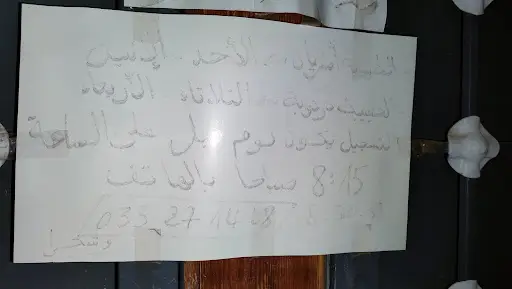 الطبيبة فريال .. الأحد . الإثنين
الطبيبة مرزوقة .. الثلاثاء الأربعاء
التسجيل يكون يوم بل على الساعة
8:15 صباحا بالهاتف
033 27 14 18
وشكرا